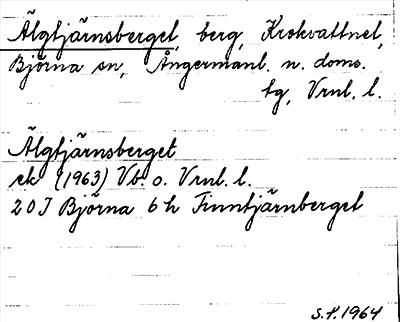 Älgtjärnsberget, berg, Krokvattnet,
Björna sn, Ångermanl. n. doms.
tg, Vrnl. l.
Älgtjärnsberget
ek (1963) Vb. o. Vrnl. l.
20 J Björna 6 h Finntjärnberget
S.F. 1964